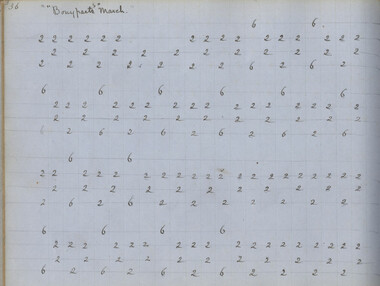 36 "Bonyparts" March
6 6
2 2 2 2 2 2 2 2 2 2 2 2 2 2 2 2
2 2 2 2 2 2 2 2 2 2 2
2 2 2 2 2 2 2 2 6 2 6 2
6 6 6 6 6 6
2 2 2 2 2 2 2 2 2 2 2 2 2 2 2 2 2 2
2 2 2 2 2 2 2 2 2 2 2
2 6 2 6 2 6 2 6 2 6
6 6
2 2 2 2 2 2 2 2 2 2 2 2 2 2 2 2 2 2 2 2 2
2 2 2 2 2 2 2 2 2 2 2
2 6 2 6 2 2 2 2 2 2 2 2
6 6 6 6
2 2 2 2 2 2 2 2 2 2 2 2 2 2 2 2 2 2
2 2 2 2 2 2 2 2 2 2 2
6 2 6 2 6 2 6 2 2 2 2